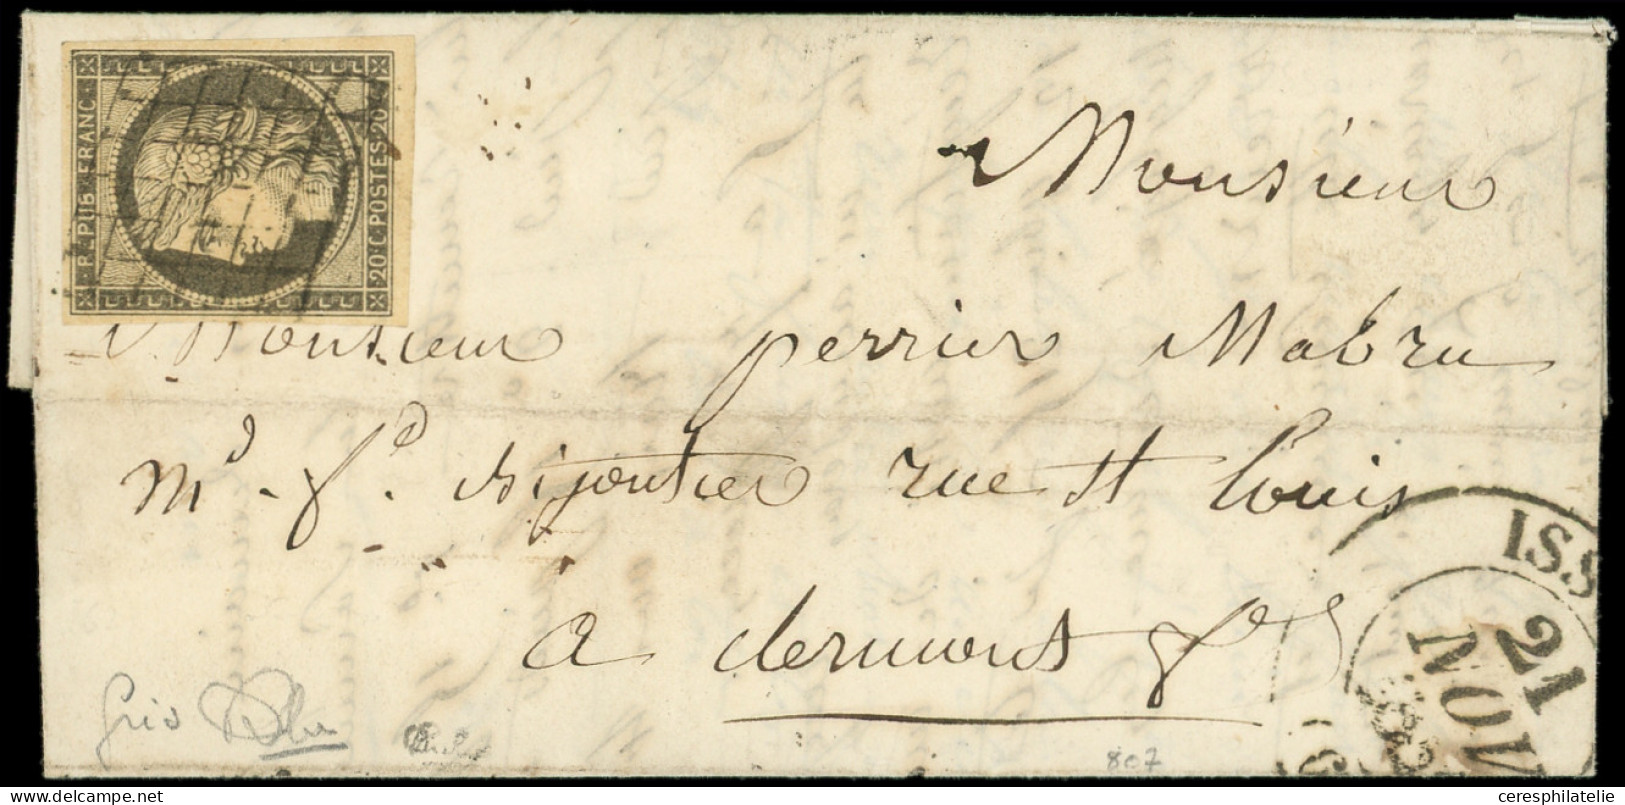 REPUB. FRANC.
20 C. POSTES. 20 C.
Monsieur
Monsieur perrier Mabru
md. fd. bijoutier rue st Louis
a clermont fd
ISS
21
NOV.
gris
807
ceresphilatelie